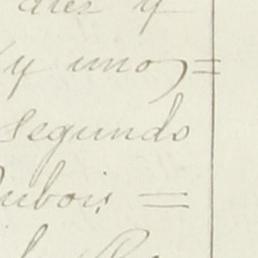 diez y
y uno)=
segundo
Dubois =